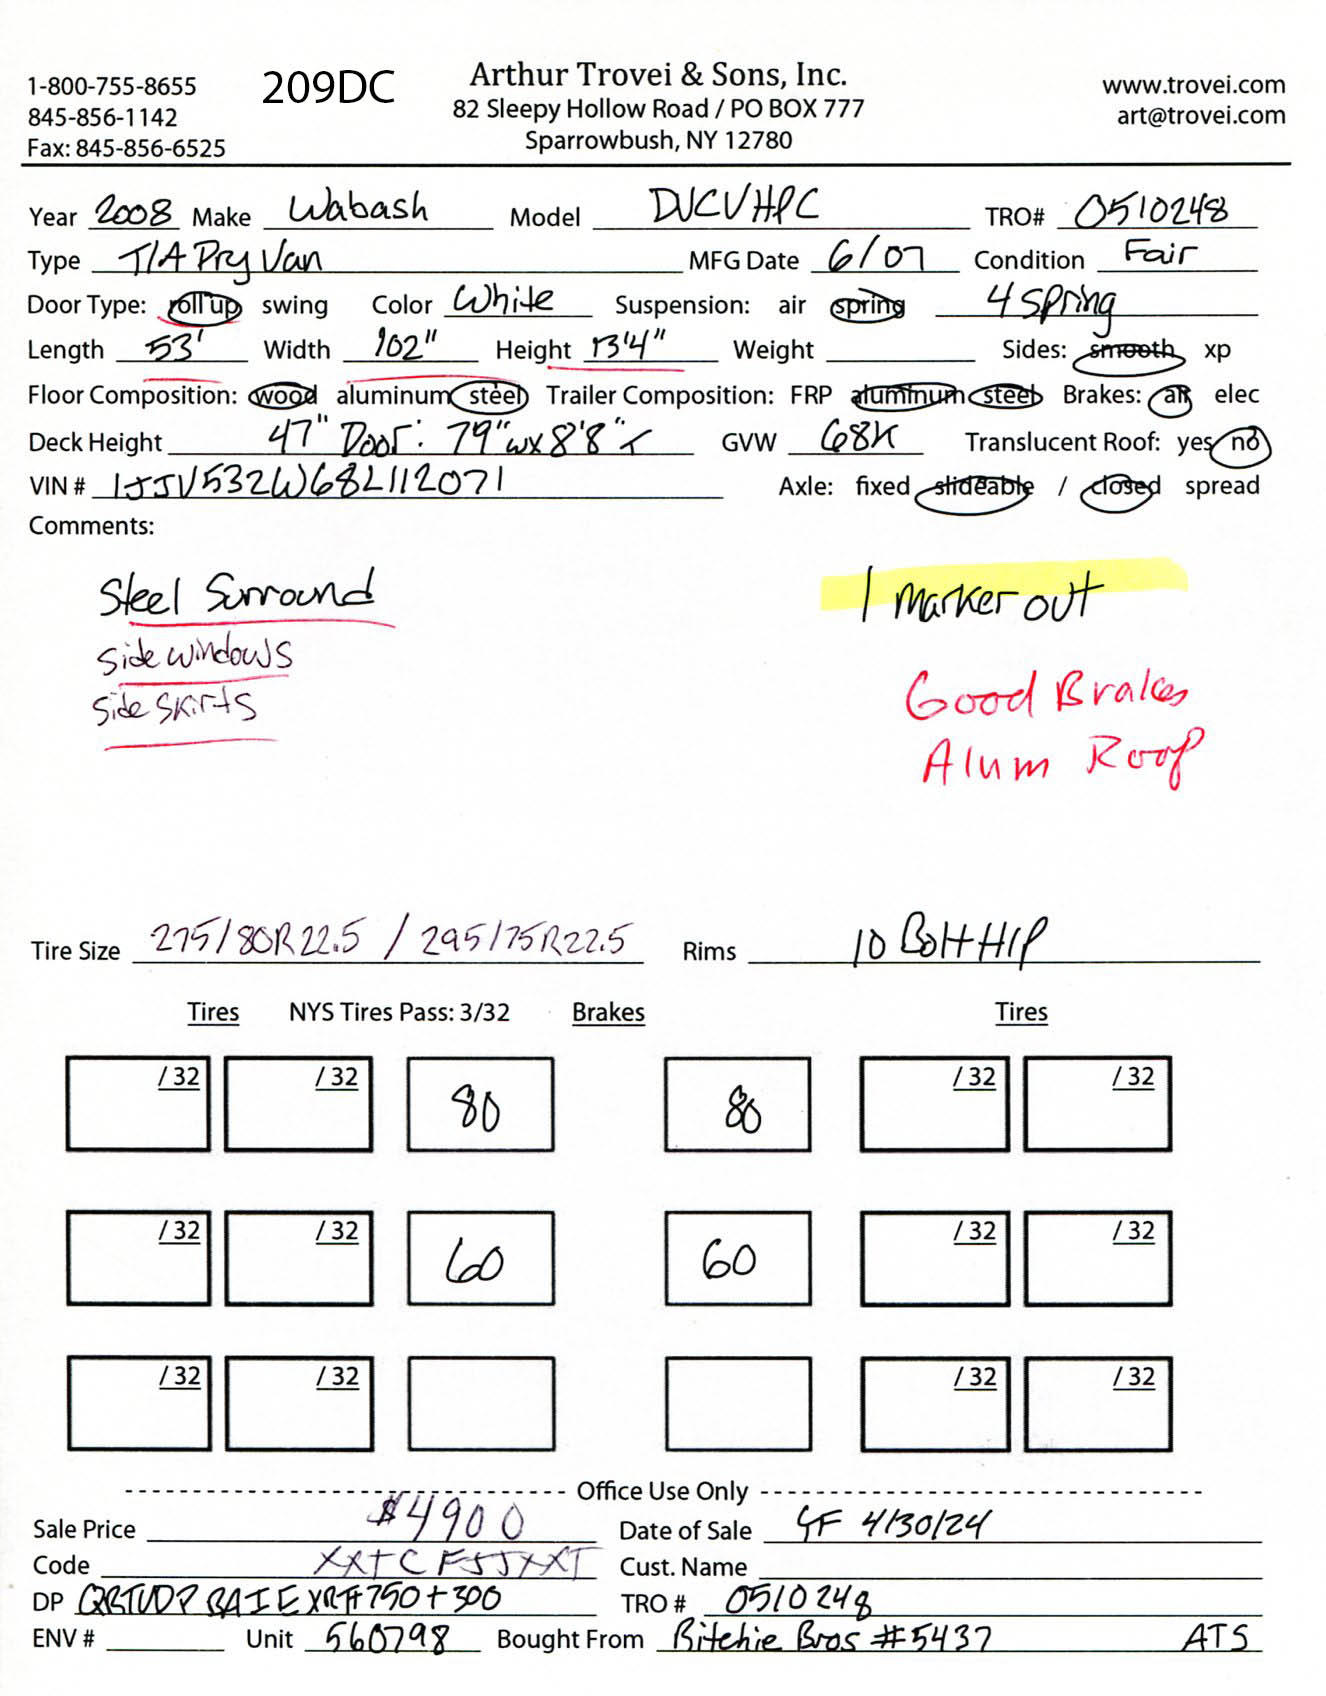 1-800-755-8655 209DC Arthur Trovei & Sons, Inc. www.trovei.com
845-856-1142 82 Sleepy Hollow Road / PO BOX 777 art@trovei.com
Fax: 845-856-6525 Sparrowbush, NY 12780
Year 2008 Make Wabash Model DVCVHPC TRO# 0510248
Type T/A Dry Van MFG Date 6/07 Condition Fair
Door Type: roll up swing Color White Suspension: air spring 4 Spring
Length 53' Width 102" Height 13'4" Weight Sides: smooth xp
Floor Composition: wood aluminum steel Trailer Composition: FRP aluminum steel Brakes: air elec
Deck Height 47" Door: 79"w x 8'8"T GVW 68K Translucent Roof: yes no
VIN # 1JJV532W68L112071 Axle: fixed slideable / closed spread
Comments:
Steel Surround 1 marker out
side windows Good Brakes
side skirts Alum Roof
Tire Size 275/80R22.5 / 295/75R22.5 Rims 10 Bolt H/P
Tires NYS Tires Pass: 3/32 Brakes Tires
/ 32 / 32 80 80 / 32 / 32
/ 32 / 32 60 60 / 32 / 32
/ 32 / 32 / 32 / 32
Office Use Only
Sale Price $4900 Date of Sale 4/30/24
Code Cust. Name
DP 750 + 300 TRO # 0510248
ENV # Unit 560798 Bought From Ritchie Bros #5437 ATS